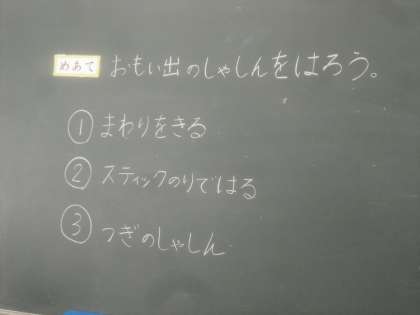 めあて おもい出のしゃしんをはろう。
① まわりをきる
② スティックのりではる
③ つぎのしゃしん